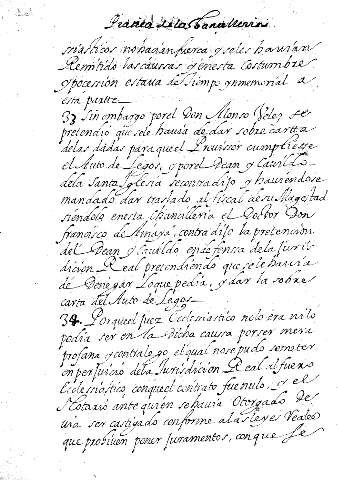 siasticos no hazian fuerza y se les havian
Remitido las caussas y en esta costumbre
y possesion estava de tiempo ynmemorial a
esta parte
33 Sin embargo por el Don Alonso se
pretendio que se le havia de dar sobre cartta
de las dadas para que el Provissor cumpliesse
el Auto de Legos, y por el Dean y Cavildo
de la Santa Yglesia se contradijo y haviendose
mandado dar traslado al fiscal de su Magestad
siendolo en esta Chanzilleria el Doctor Don
francisco de Amaya, contradijo la pretencion
del Dean y Cavildo en defensa de la Juris-
dicion Real pretendiendo que se le havia
de Denegar lo que pedia, y dar la sobre
carta del Auto de Legos
34 Porque el Juez Eclesiastico no lo era ni lo
podia ser en la dicha caussa por ser mera
profana y contra lego, el qual no se pudo someter
en perjuicio de la Jurisdicion Real al fuero
Eclesiastico con que el contrato fue nulo, y el
Notario ante quien se havia Otorgado de
via ser castigado conforme a las Leyes Reales
que prohiven poner Juramentos, con que se